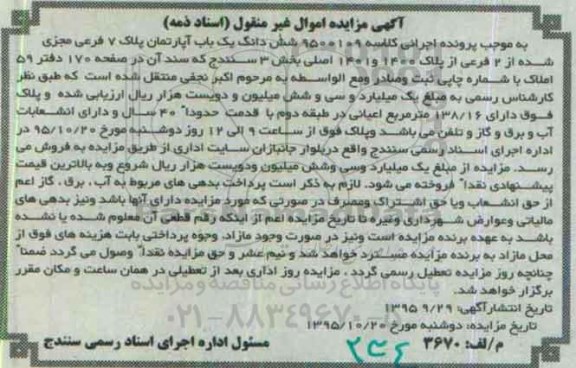 آگهی مزایده اموال غیر منقول (اسناد ذمه)
به موجب پرونده اجرائی کلاسه شش دانگ یک باب آپارتمان پلاک ۷ فرعی مجزی
شده از ۲ فرعی از پلاک ۱۴۰۰ و ۱۴۰۱ اصلی بخش ۳ سنندج که سند آن در صفحه ۱۷۰ دفتر ۵۹
املاک با شماره چاپی ثبت وصادر ومع الواسطه به مرحوم اکبر نجفی منتقل شده است که طبق نظر
کارشناس رسمی به مبلغ یک میلیارد و سی و شش میلیون و دویست هزار ریال ارزیابی شده و پلاک
فوق دارای ۱۳۸/۱۶ مترمربع اعیانی در طبقه دوم با قدمت حدوداً ۴۰ سال و دارای انشعابات
آب و برق و گاز و تلفن می باشد وپلاک فوق از ساعت ۹ الی ۱۲ روز دوشنبه مورخ ۹۵/۱۰/۲۰ در
اداره اجرای اسناد رسمی سنندج واقع دربلوار جانبازان سایت اداری از طریق مزایده به فروش می
رسد. مزایده از مبلغ یک میلیارد وسی وشش میلیون ودویست هزار ریال شروع وبه بالاترین قیمت
پیشنهادی نقداً فروخته می شود. لازم به ذکر است پرداخت بدهی های مربوط به آب ، برق ، گاز اعم
از حق انشعاب ویا حق اشتراک ومصرف در صورتی که مورد مزایده دارای آنها باشد ونیز بدهی های
مالیاتی وعوارض شهرداری وغیره تا تاریخ مزایده اعم از اینکه رقم قطعی آن معلوم شده یا نشده
باشد به عهده برنده مزایده است ونیز در صورت وجود مازاد، وجوه پرداختی بابت هزینه های فوق از
محل مازاد به برنده مزایده مسترد خواهد شد و نیم عشر و حق مزایده نقداً وصول می گردد ضمناً
چنانچه روز مزایده تعطیل رسمی گردد ، مزایده روز اداری بعد از تعطیلی در همان ساعت و مکان مقرر
برگزار خواهد شد.
پایگاه اطلاع رسانی مناقصه و مزایده
تاریخ انتشارآگهی: ۱۳۹۵/۹/۲۹
۰۲۱-۸۸۳۴۹۶۷۰
تاریخ مزایده: دوشنبه مورخ ۱۳۹۵/۱۰/۲۰
م/لف: ۳۶۷۰ مسئول اداره اجرای اسناد رسمی سنندج